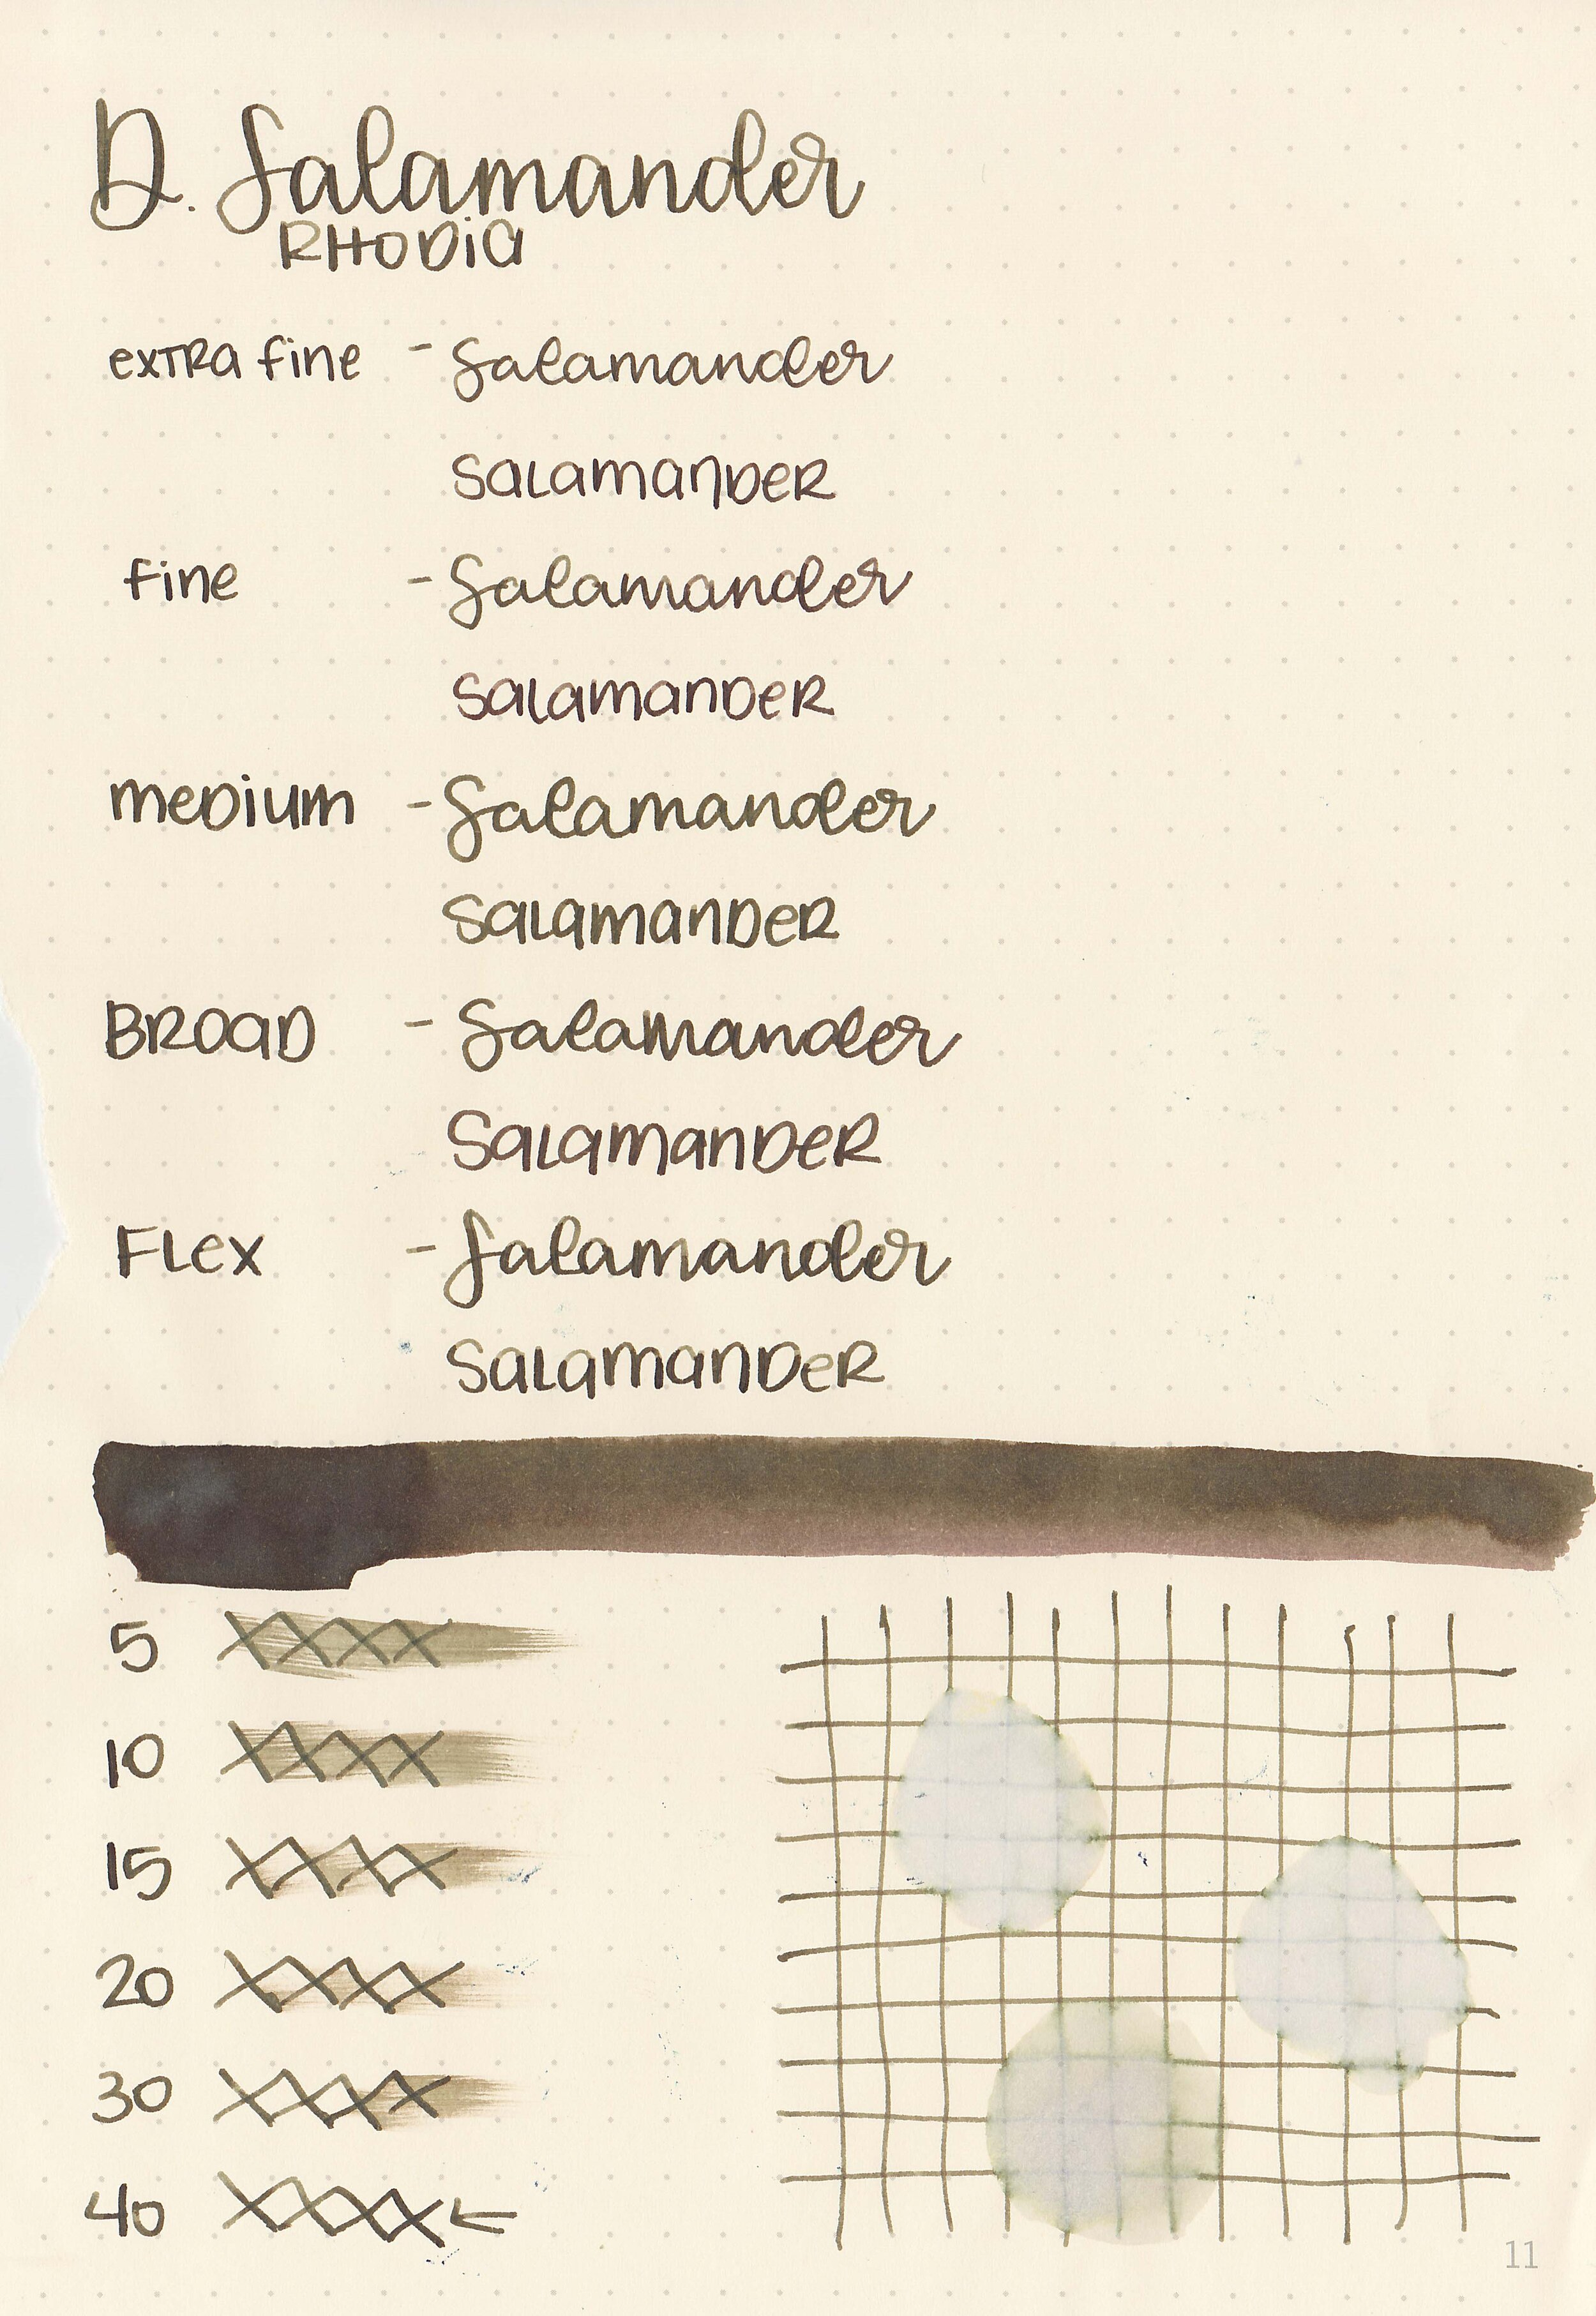 D. Salamander
RHODIA
extra fine - Salamander
SALAMANDER
fine - Salamander
SALAMANDER
medium - Salamander
SALAMANDER
BROAD - Salamander
SALAMANDER
FLex - Salamander
SALAMANDER
5 XXXX
10 XXXX
15 XXXX
20 XXXX
30 XXXX
40 XXXX ←
11